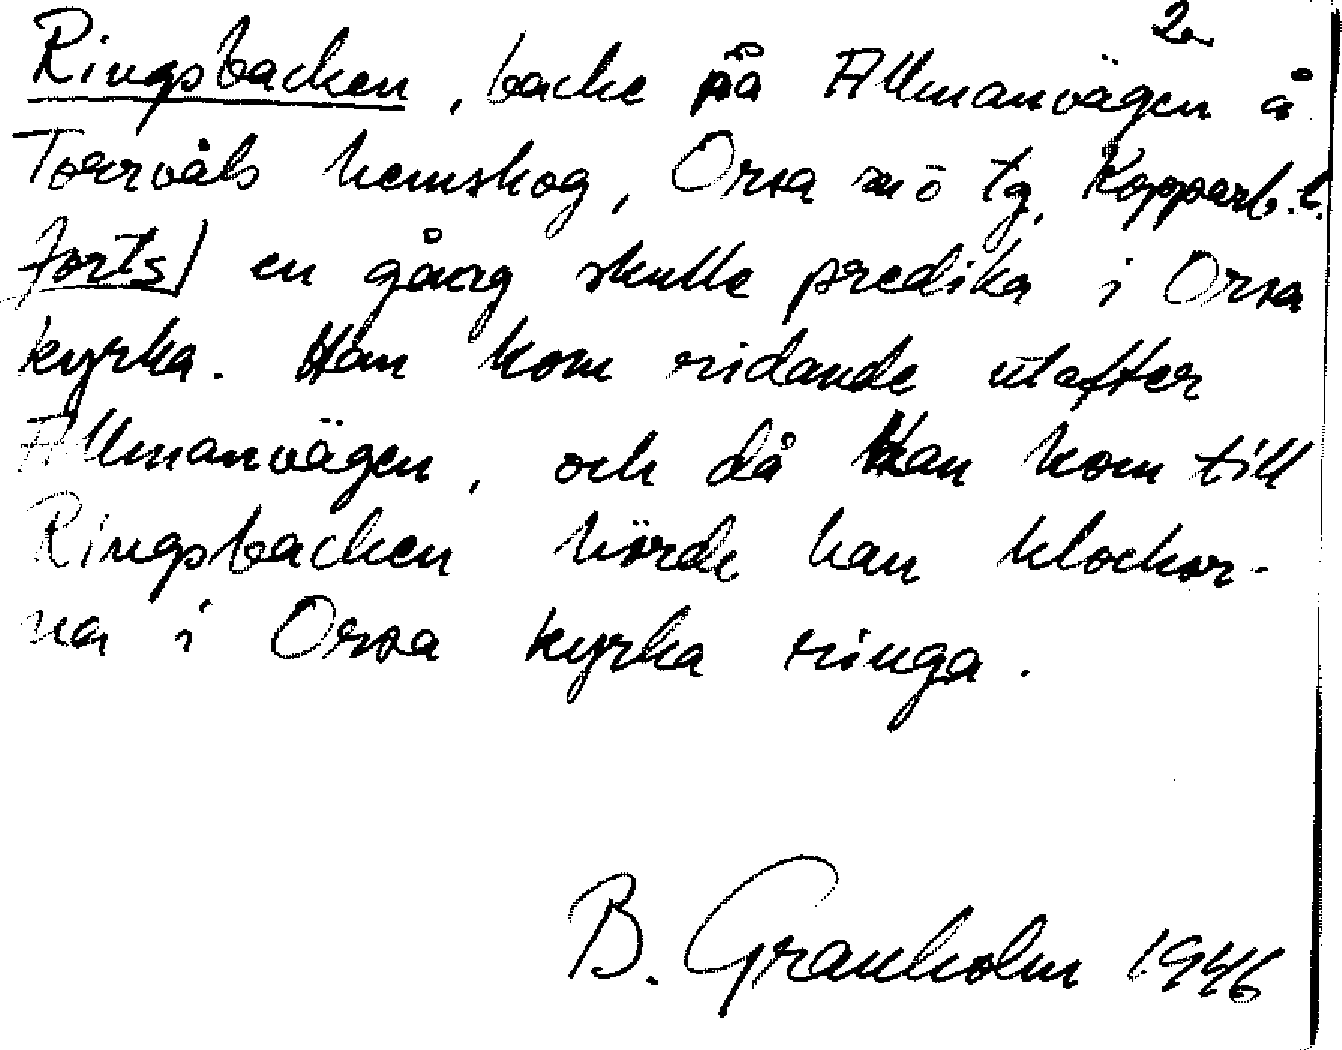 2a
Ringsbacken, backe på Allmanvägen å
Torrvåls hemskog, Orsa sn ö tg, Kopparb. l.
forts) en gång skulle predika i Orsa
kyrka. Han kom ridande utefter
Allmanvägen, och då Han kom till
Ringsbacken hörde han klockor-
na i Orsa kyrka ringa.
B. Granholm 1946